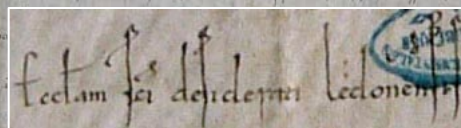 eccłam sci desiderii ledonensis